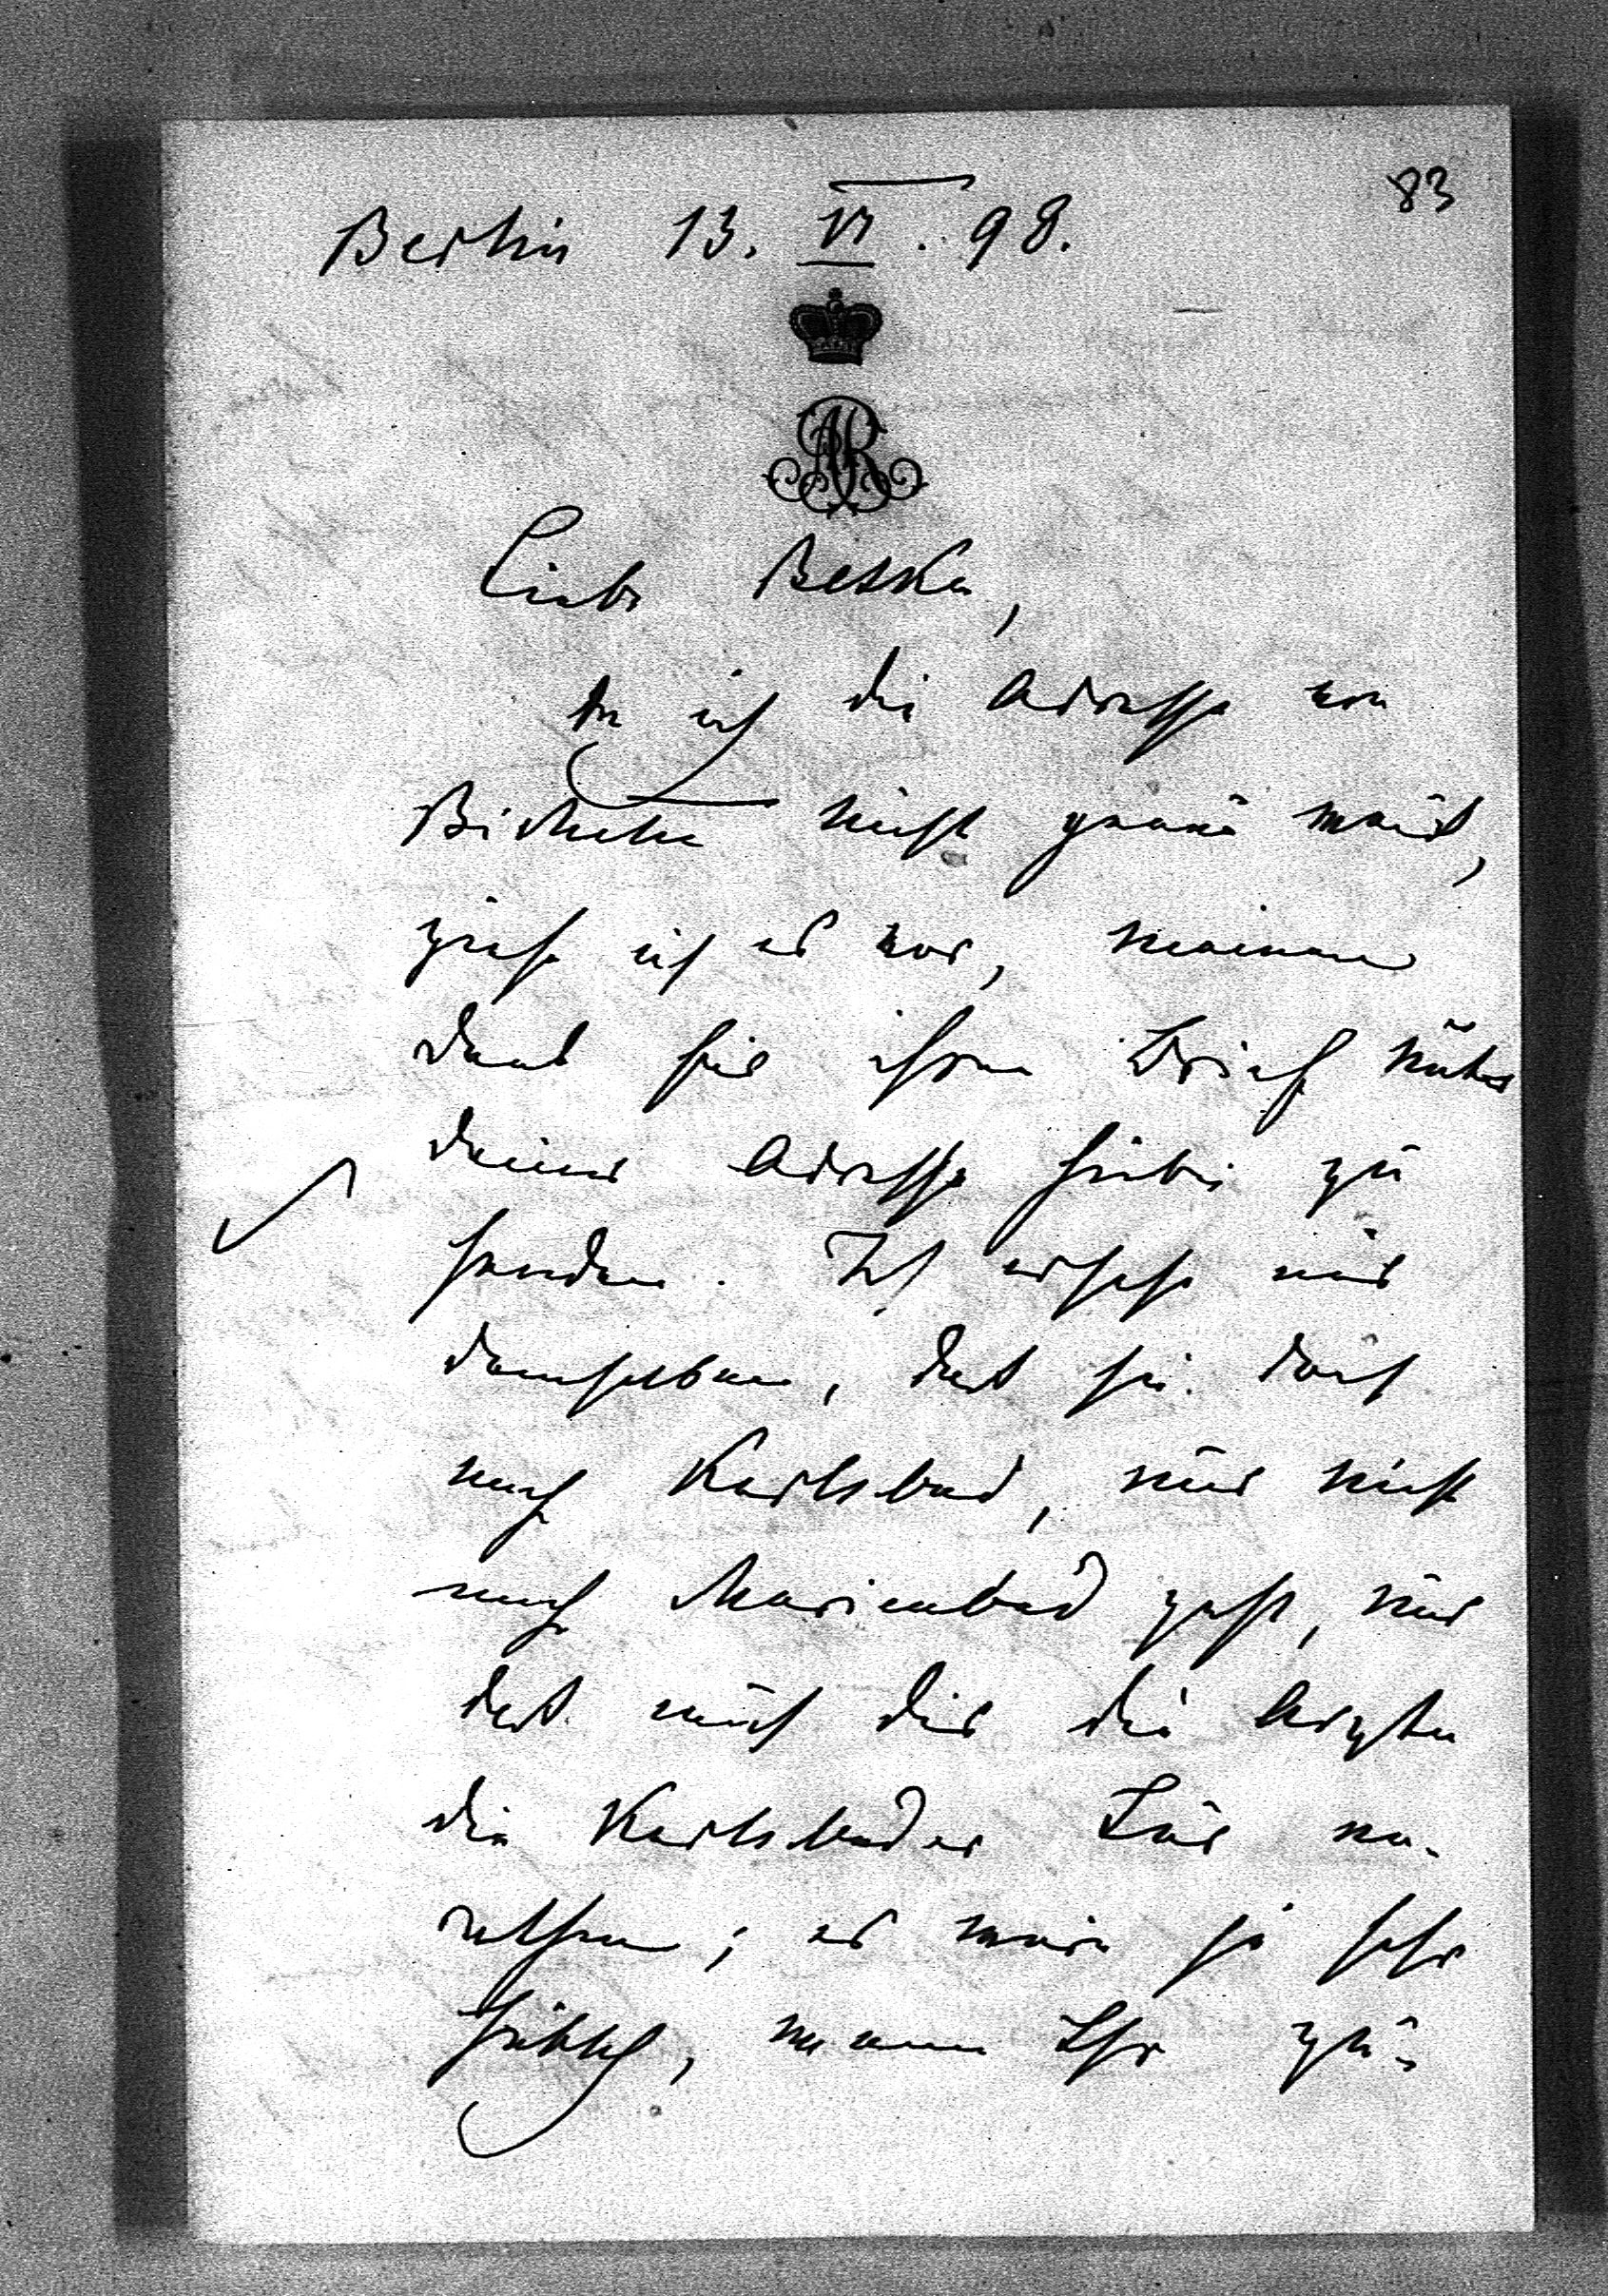 83
Berlin 13. VI. 98.
AR
Liebe Betka,
da ich die Adresse von
Bichette nicht genau weiß,
ziehe ich es vor, meinen
Dank für ihren Brief unter
deiner Adresse hiebei zu
senden. Ich ersehe aus
demselben, daß sie doch
nach Karlsbad, und nicht
nach Marienbad geht, und
daß auch dir die Ärzte
die Karlsbader Kur an-
rathen; es wäre ja sehr
hübsch, wenn Ihr zu-